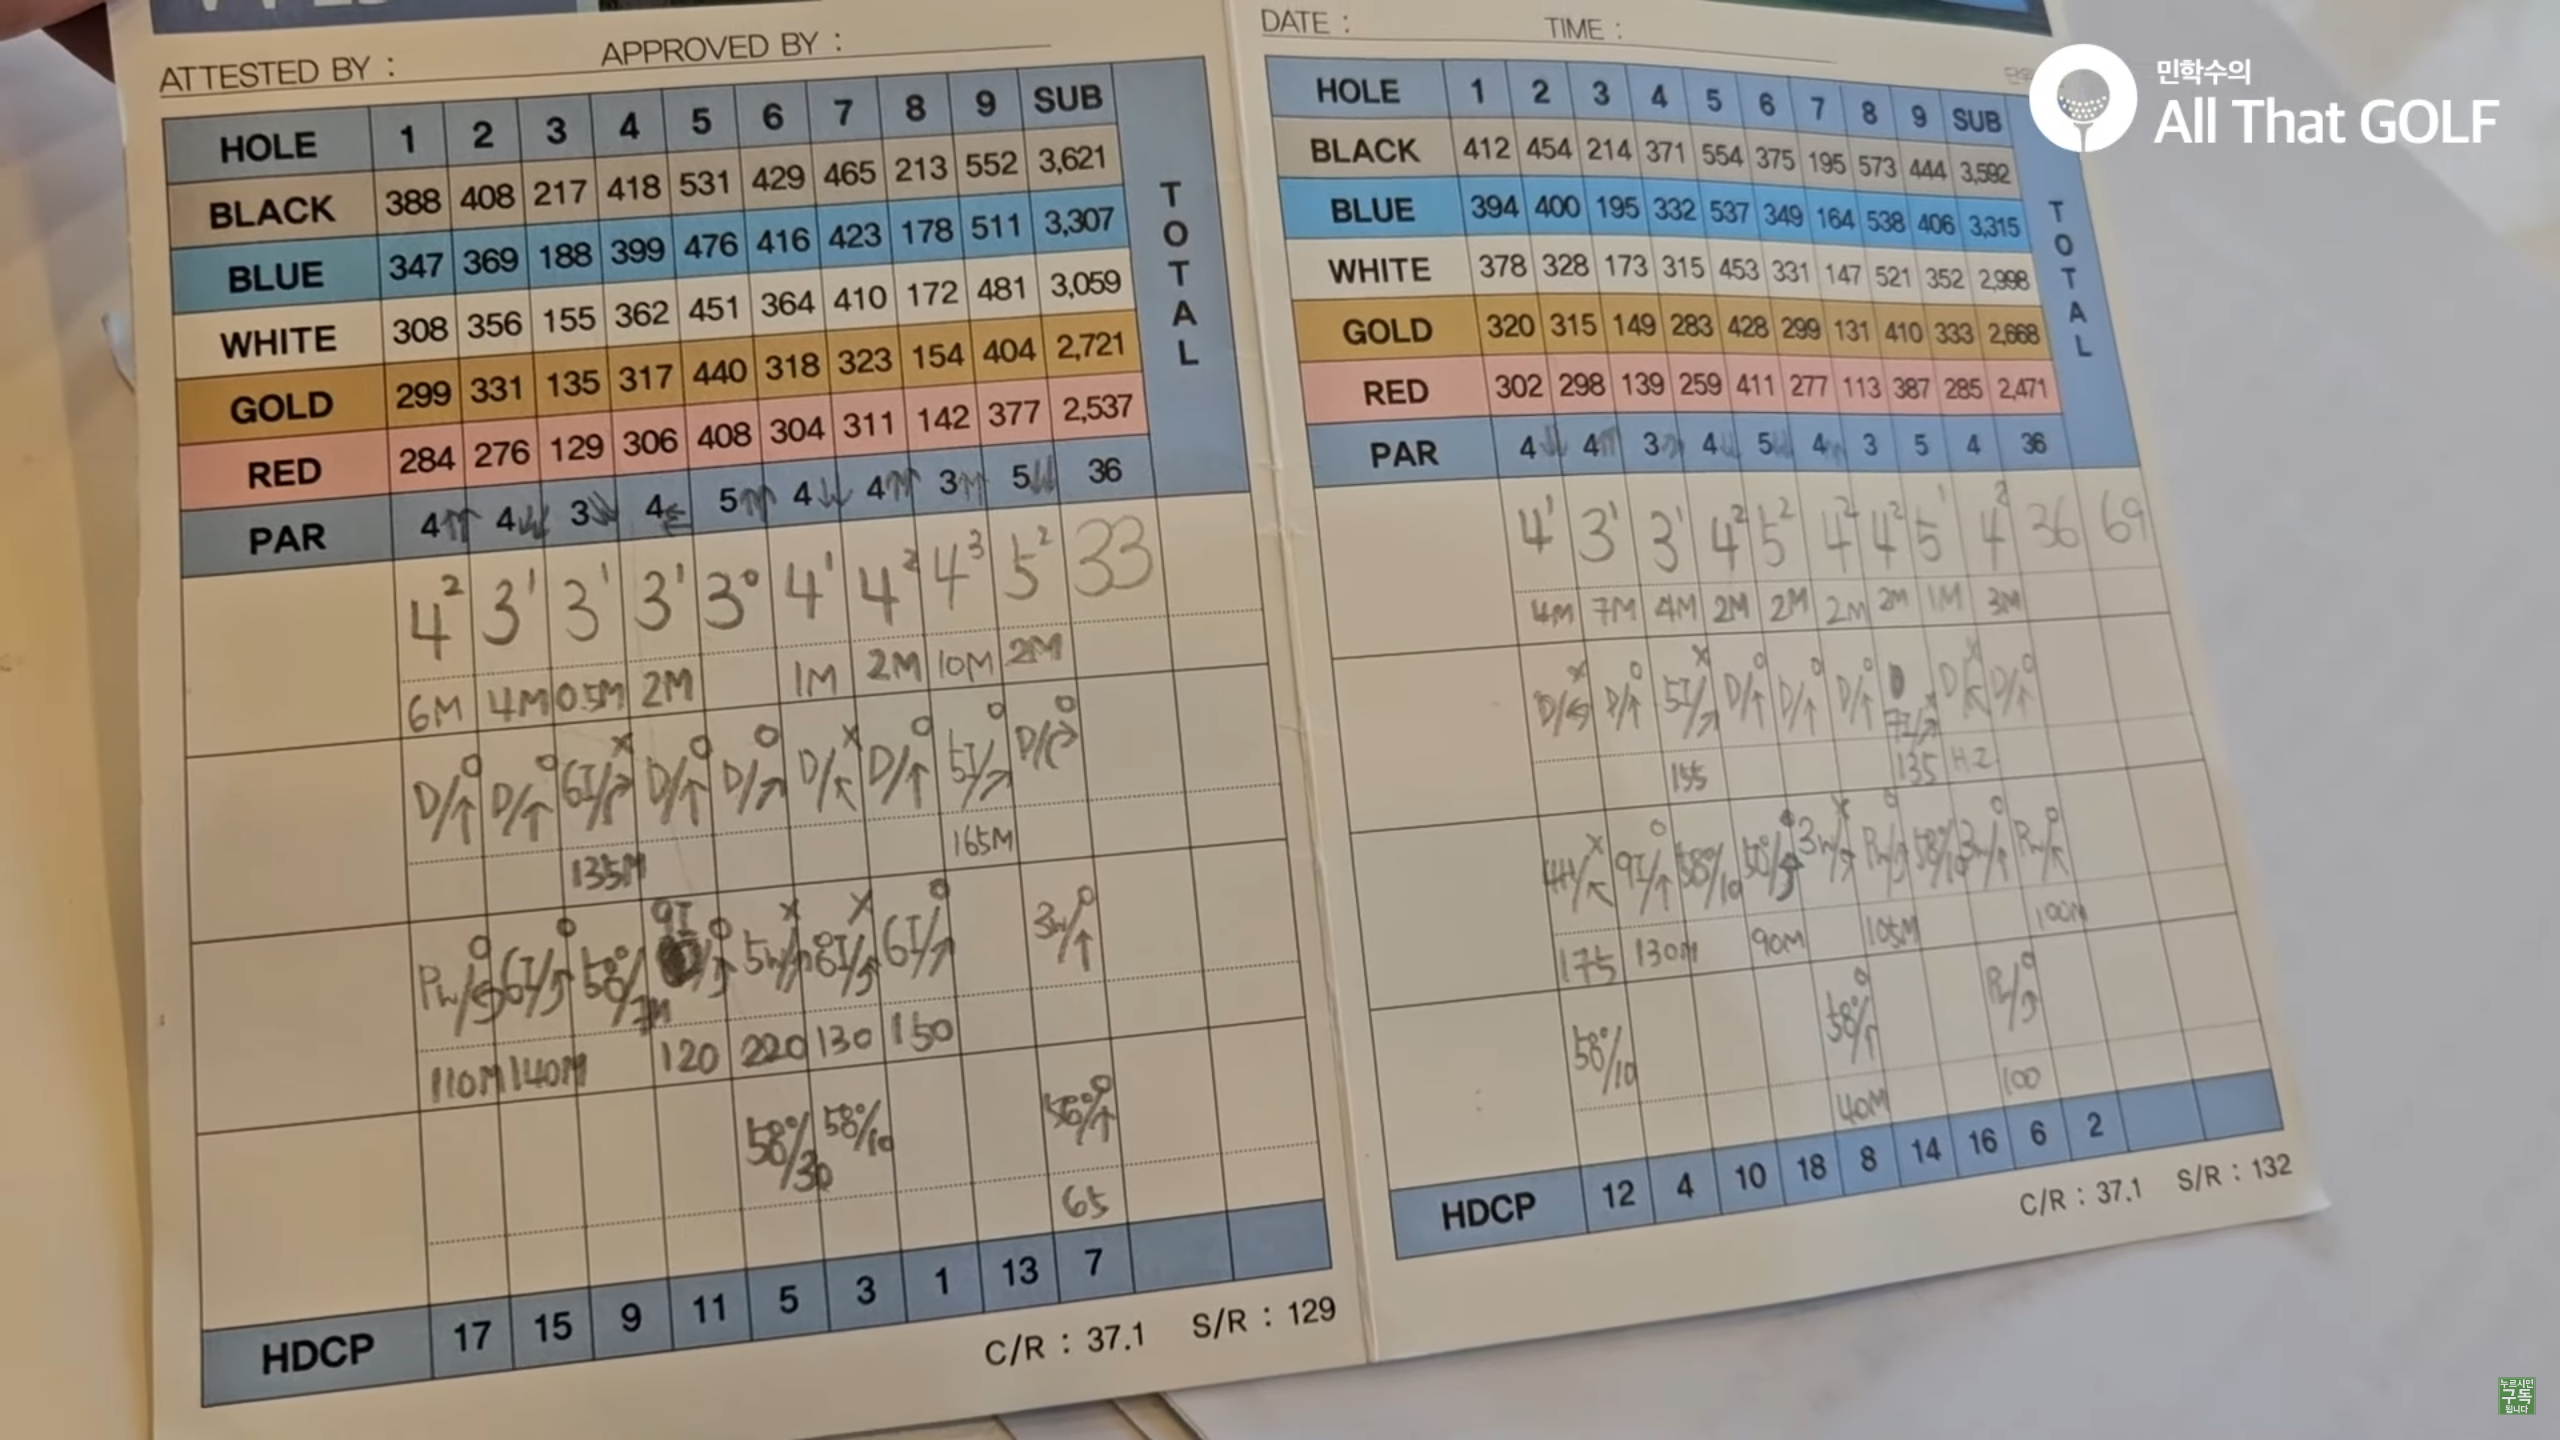 민학수의
All That GOLF
ATTESTED BY : APPROVED BY :
HOLE 1 2 3 4 5 6 7 8 9 SUB TOTAL
BLACK 388 408 217 418 531 429 465 213 552 3,621
BLUE 347 369 188 399 476 416 423 178 511 3,307
WHITE 308 356 155 362 451 364 410 172 481 3,059
GOLD 299 331 135 317 440 318 323 154 404 2,721
RED 284 276 129 306 408 304 311 142 377 2,537
PAR 4↑↑ 4↓↓ 3 4 5↑↑ 4↓↓ 4↑↑ 3↑↑ 5↓↓ 36
4² 3¹ 3¹ 3¹ 3⁰ 4¹ 4² 4³ 5² 33
6M 4M 0.5M 2M 1M 2M 10M 2M
D/↑ O D/↑ O 6I/ X D/↑ O D/↗ O D/↖ X D/↑ O 5I/↗ O D/ O
135M 165M
Pw/ O 6I/ O 58°/7M 9I/ O 5w/ X 8I/ X 6I/↗ O 3w/↑ O
110M 140M 120 220 130 150
58°/30 58°/10 ↑ O
65
HDCP 17 15 9 11 5 3 1 13 7
C/R : 37.1 S/R : 129
DATE : TIME :
HOLE 1 2 3 4 5 6 7 8 9 SUB TOTAL
BLACK 412 454 214 371 554 375 195 573 444 3,592
BLUE 394 400 195 332 537 349 164 538 406 3,315
WHITE 378 328 173 315 453 331 147 521 352 2,998
GOLD 320 315 149 283 428 299 131 410 333 2,668
RED 302 298 139 259 411 277 113 387 285 2,471
PAR 4 4 3 4 5 4 3 5 4 36
4¹ 3¹ 3¹ 4² 5² 4² 4² 5¹ 4² 36 69
4M 7M 4M 2M 2M 2M 2M 1M 3M
D/ X D/↑ O 5I/↗ X D/↑ O D/↑ O D/↑ O 7I/↗ X D/↖ X D/↑ O
155 135 HZ
4H/↖ X 9I/↑ O 58°/10 50°/ 3w/ X Pw/ O 58°/10 3w/↑ O Pw/↖ O
175 130M 90M 105M 100M
58°/10 58°/↑ O Pw/ O
40M 100
HDCP 12 4 10 18 8 14 16 6 2
C/R : 37.1 S/R : 132
누르시면
구독
됩니다